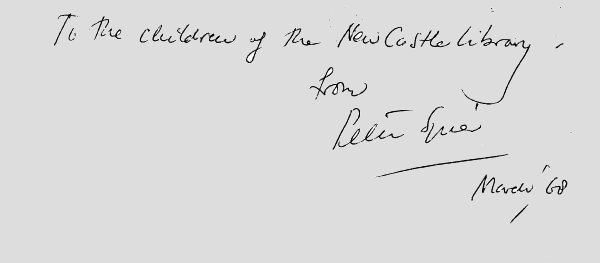 To the children of the New Castle Library,
from
Peter Spier
March '68